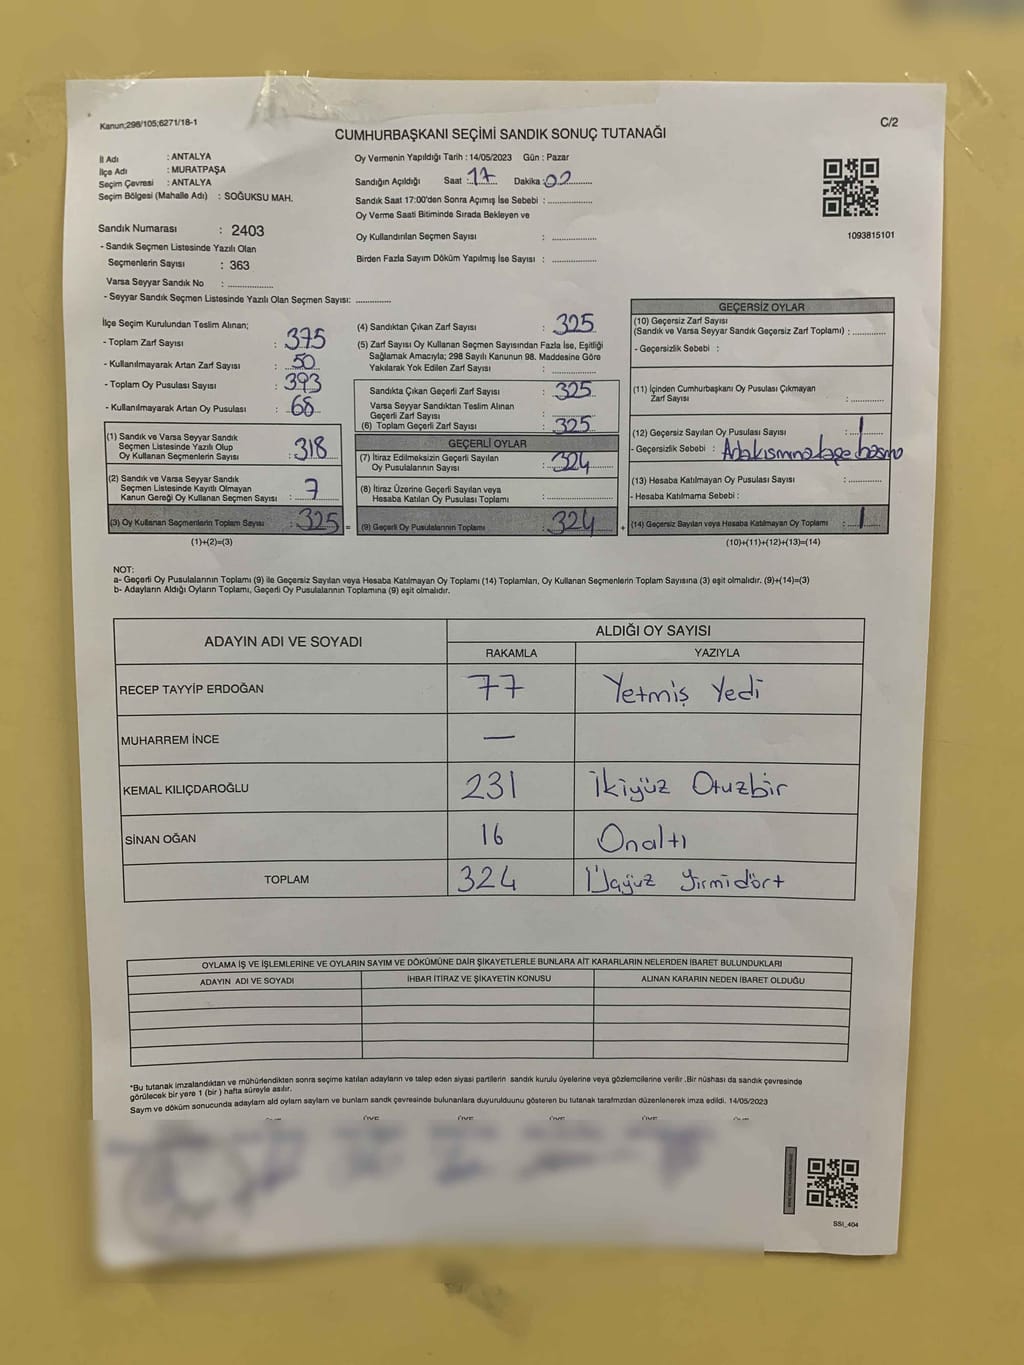 Kanun;298/105;6271/18-1
C/2
CUMHURBAŞKANI SEÇİMİ SANDIK SONUÇ TUTANAĞI
İl Adı : ANTALYA
İlçe Adı : MURATPAŞA
Seçim Çevresi : ANTALYA
Seçim Bölgesi (Mahalle Adı) : SOĞUKSU MAH.
Sandık Numarası : 2403
- Sandık Seçmen Listesinde Yazılı Olan
Seçmenlerin Sayısı : 363
Varsa Seyyar Sandık No : ..............
- Seyyar Sandık Seçmen Listesinde Yazılı Olan Seçmen Sayısı: ............
Oy Vermenin Yapıldığı Tarih : 14/05/2023 Gün : Pazar
Sandığın Açıldığı Saat : 17 Dakika : 02
Sandık Saat 17:00'den Sonra Açımış İse Sebebi : ..............
Oy Verme Saati Bitiminde Sırada Bekleyen ve
Oy Kullandırılan Seçmen Sayısı : ..............
Birden Fazla Sayım Döküm Yapılmış İse Sayısı : ..............
1093815101
İlçe Seçim Kurulundan Teslim Alınan;
- Toplam Zarf Sayısı : 375
- Kullanılmayarak Artan Zarf Sayısı : 50
- Toplam Oy Pusulası Sayısı : 393
- Kullanılmayarak Artan Oy Pusulası : 68
(1) Sandık ve Varsa Seyyar Sandık
Seçmen Listesinde Yazılı Olup
Oy Kullanan Seçmenlerin Sayısı : 318
(2) Sandık ve Varsa Seyyar Sandık
Seçmen Listesinde Kayıtlı Olmayan
Kanun Gereği Oy Kullanan Seçmen Sayısı : 7
(3) Oy Kullanan Seçmenlerin Toplam Sayısı : 325 =
(1)+(2)=(3)
(4) Sandıktan Çıkan Zarf Sayısı : 325
(5) Zarf Sayısı Oy Kullanan Seçmen Sayısından Fazla İse, Eşitliği
Sağlamak Amacıyla; 298 Sayılı Kanunun 98. Maddesine Göre
Yakılarak Yok Edilen Zarf Sayısı : ..............
Sandıkta Çıkan Geçerli Zarf Sayısı : 325
Varsa Seyyar Sandıktan Teslim Alınan
Geçerli Zarf Sayısı : ..............
(6) Toplam Geçerli Zarf Sayısı : 325
GEÇERLİ OYLAR
(7) İtiraz Edilmeksizin Geçerli Sayılan
Oy Pusulalarının Sayısı : 324
(8) İtiraz Üzerine Geçerli Sayılan veya
Hesaba Katılan Oy Pusulası Toplamı : ..............
(9) Geçerli Oy Pusulalarının Toplamı : 324 +
GEÇERSİZ OYLAR
(10) Geçersiz Zarf Sayısı
(Sandık ve Varsa Seyyar Sandık Geçersiz Zarf Toplamı) : ............
- Geçersizlik Sebebi :
(11) İçinden Cumhurbaşkanı Oy Pusulası Çıkmayan
Zarf Sayısı : ............
(12) Geçersiz Sayılan Oy Pusulası Sayısı : 1
- Geçersizlik Sebebi :
(13) Hesaba Katılmayan Oy Pusulası Sayısı : ............
- Hesaba Katılmama Sebebi :
(14) Geçersiz Sayılan veya Hesaba Katılmayan Oy Toplamı : 1
(10)+(11)+(12)+(13)=(14)
NOT:
a- Geçerli Oy Pusulalarının Toplamı (9) ile Geçersiz Sayılan veya Hesaba Katılmayan Oy Toplamı (14) Toplamları, Oy Kullanan Seçmenlerin Toplam Sayısına (3) eşit olmalıdır. (9)+(14)=(3)
b- Adayların Aldığı Oyların Toplamı, Geçerli Oy Pusulalarının Toplamına (9) eşit olmalıdır.
ADAYIN ADI VE SOYADI
ALDIĞI OY SAYISI
RAKAMLA YAZIYLA
RECEP TAYYİP ERDOĞAN 77 Yetmiş Yedi
MUHARREM İNCE —
KEMAL KILIÇDAROĞLU 231 İkiyüz Otuzbir
SİNAN OĞAN 16 Onaltı
TOPLAM 324 Üçyüz Yirmidört
OYLAMA İŞ VE İŞLEMLERİNE VE OYLARIN SAYIM VE DÖKÜMÜNE DAİR ŞİKAYETLERLE BUNLARA AİT KARARLARIN NELERDEN İBARET BULUNDUKLARI
ADAYIN ADI VE SOYADI İHBAR İTİRAZ VE ŞİKAYETİN KONUSU ALINAN KARARIN NEDEN İBARET OLDUĞU
*Bu tutanak imzalandıktan ve mühürlendikten sonra seçime katılan adayların ve talep eden siyasi partilerin sandık kurulu üyelerine veya gözlemcilerine verilir .Bir nüshası da sandık çevresinde
görülecek bir yere 1 (bir ) hafta süreyle asılır.
Saym ve döküm sonucunda adaylam ald oylam saylam ve bunlam sandk çevresinde bulunanlara duyurulduunu gösteren bu tutanak tarafmzdan düzenlenerek imza edildi. 14/05/2023
SSI_404